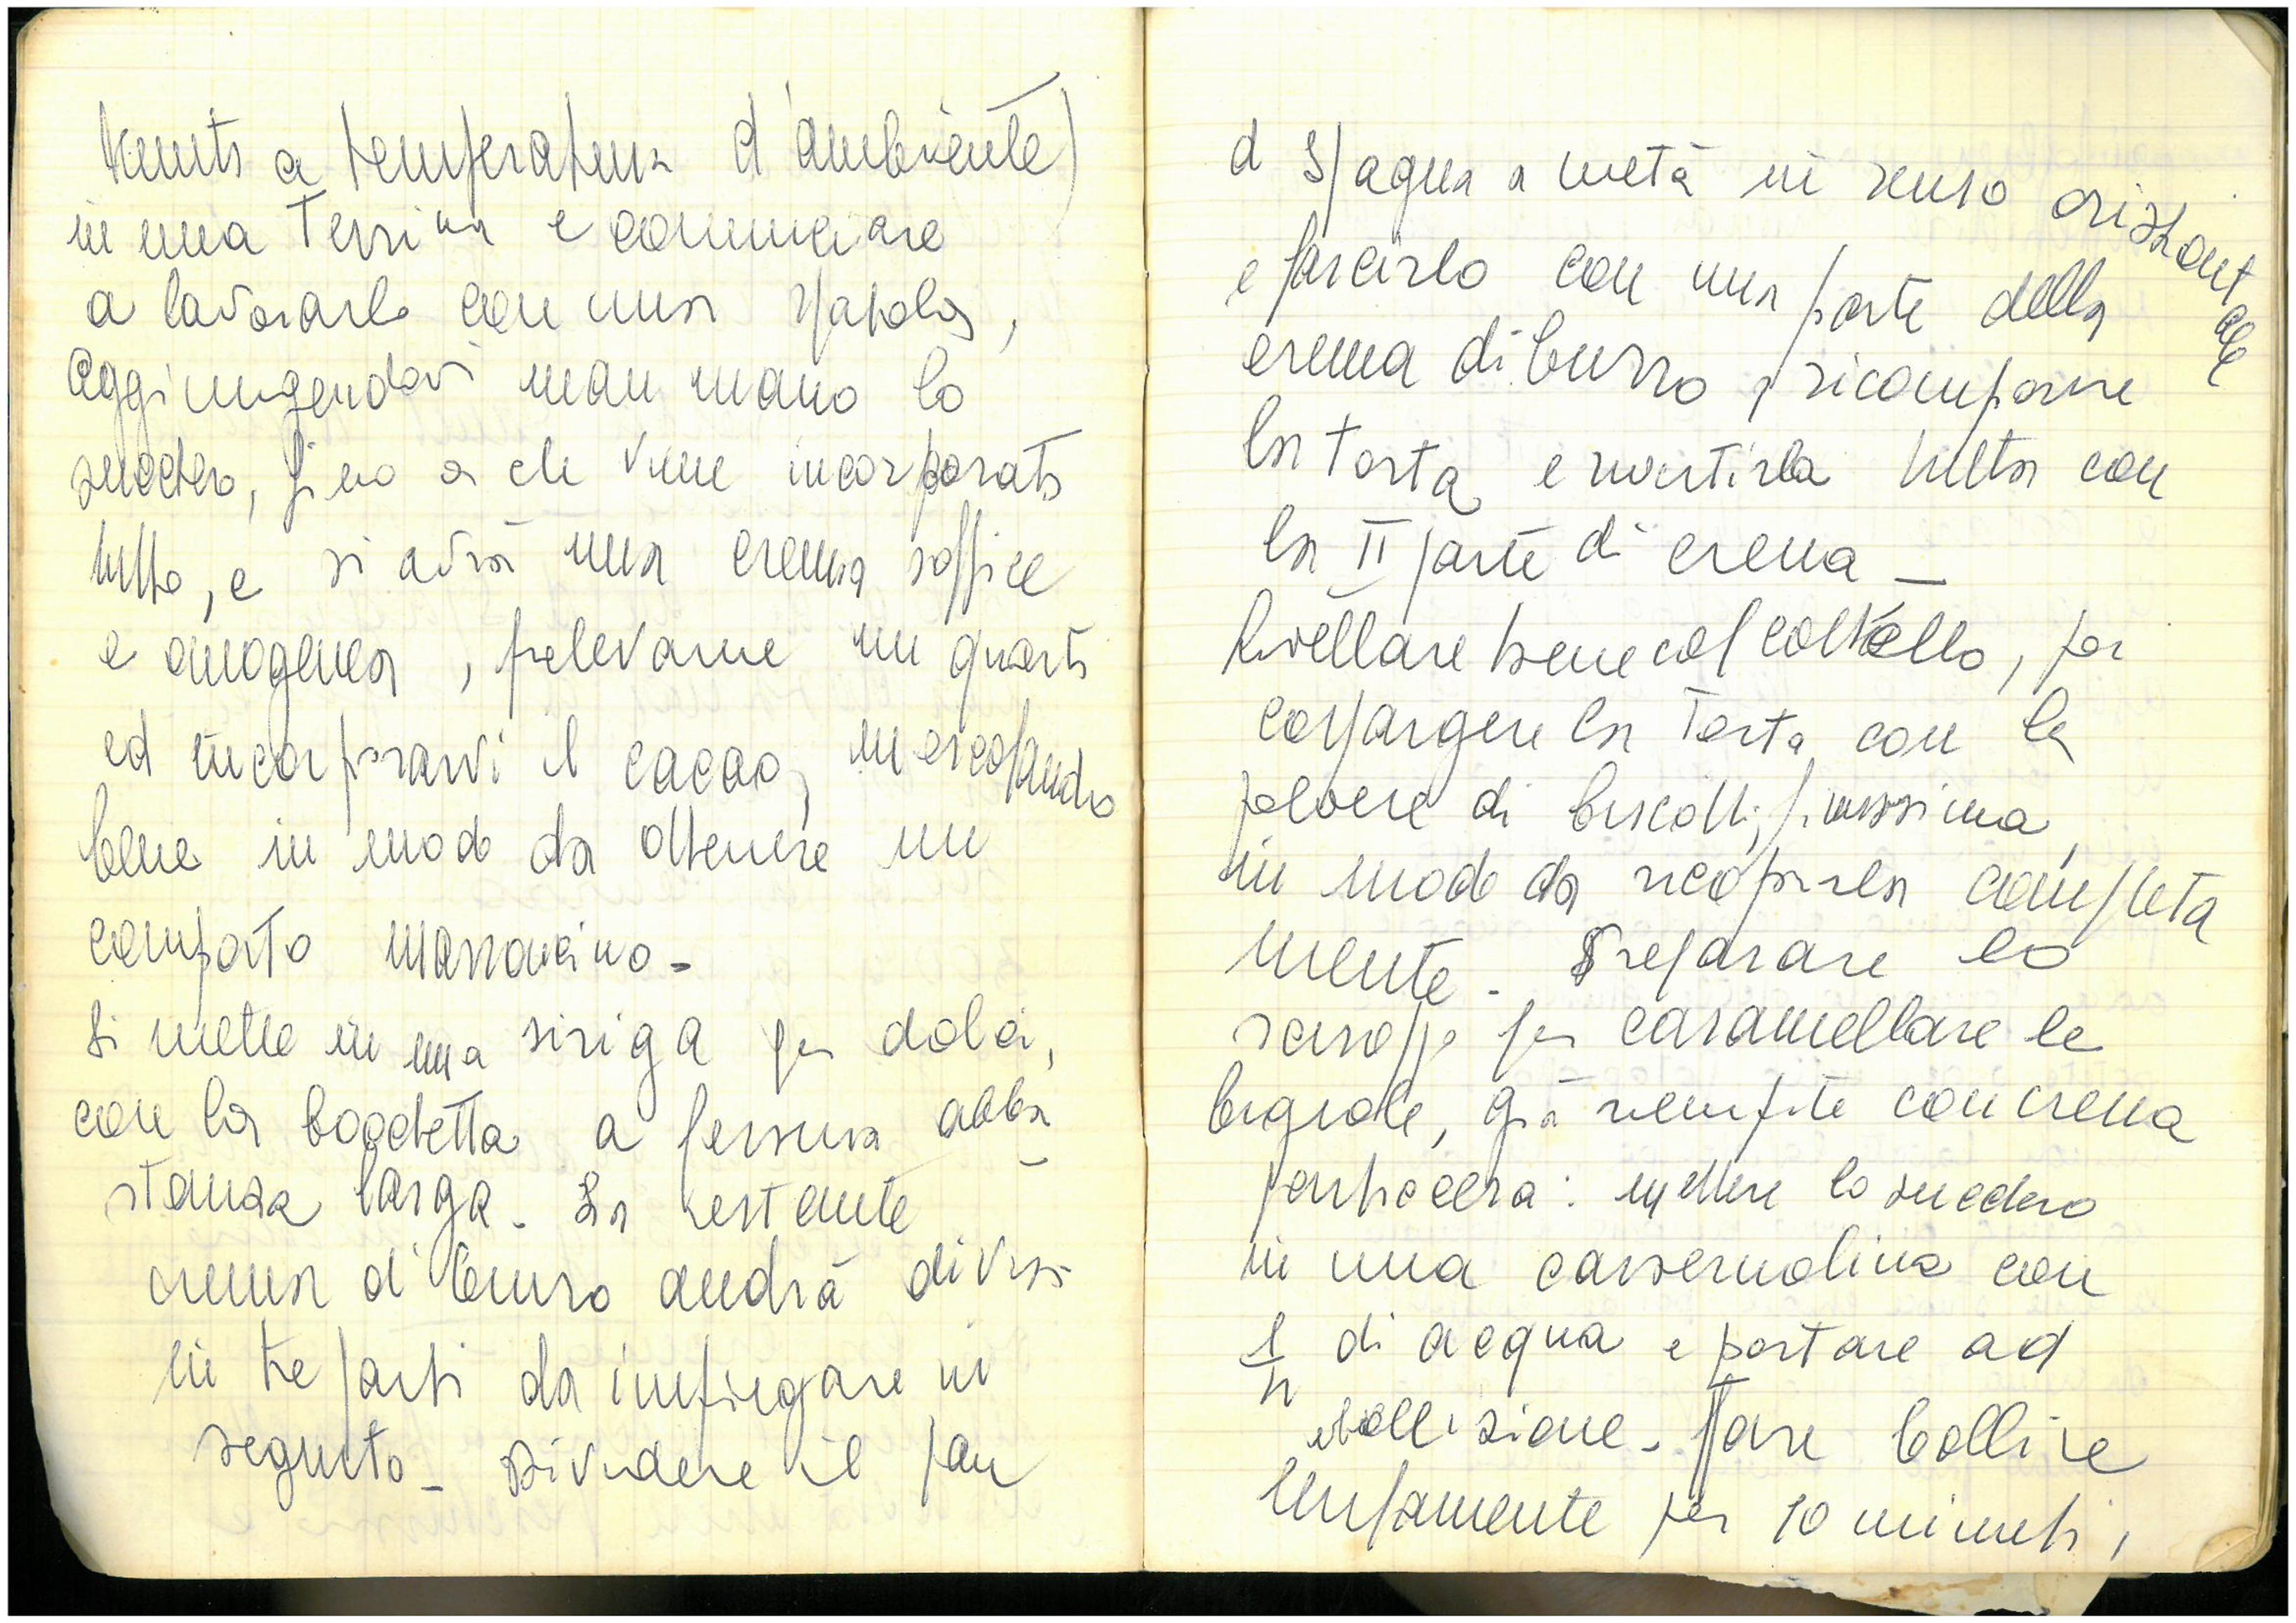 tenuto a temperatura d'ambiente)
in una terrina e cominciare
a lavorarlo con una spatola,
aggiungendovi man mano lo
zucchero, fino a che viene incorporato
tutto, e si avrà una crema soffice
e omogenea, prelevarne un quarto
ed incorporarvi il cacao, mescolando
bene in modo da ottenere un
composto marroncino-
Si mette in una siriga per dolci,
con la bocchetta a fessura abba
stanza larga. La restante
crema di burro andrà divisa
in tre parti da impiegare in
seguito- Dividere il pan
d Spagna a metà in senso orizzontale
e farcirlo con una parte della
crema di burro, ricomporre
la torta e rivestirla tutta con
la II parte di crema-
livellare bene col coltello, poi
cospargere la torta con la
polvere di biscotti, finissima,
in modo da ricoprirla completa
mente- Preparare lo
sciroppo per caramellare le
bignole, già riempite con crema
pasticcera: mettere lo zucchero
in una casseruolina con
di acqua e portare ad
ebollizione- Fare bollire
lentamente per 10 minuti,